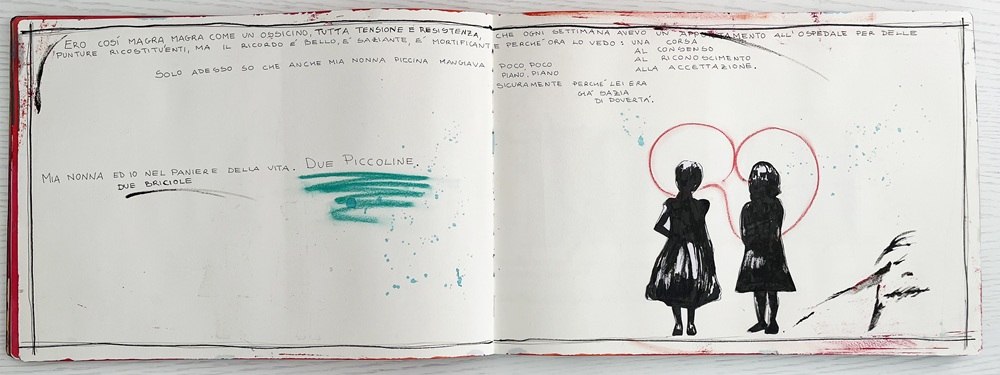 ERO COSÍ MAGRA MAGRA COME UN OSSICINO, TUTTA TENSIONE E RESISTENZA, CHE OGNI SETTIMANA AVEVO UN APPUNTAMENTO ALL'OSPEDALE PER DELLE
PUNTURE RICOSTITUENTI, MA IL RICORDO É BELLO, E' SAZIANTE, E' MORTIFICANTE PERCHÉ ORA LO VEDO: UNA CORSA
AL CONSENSO
AL RICONOSCIMENTO
ALLA ACCETTAZIONE.
SOLO ADESSO SO CHE ANCHE MIA NONNA PICCINA MANGIAVA POCO, POCO
PIANO, PIANO
SICURAMENTE PERCHÉ LEI ERA
GIÁ SAZIA
DI POVERTÁ.
MIA NONNA ED IO NEL PANIERE DELLA VITA. DUE PICCOLINE.
DUE BRICIOLE